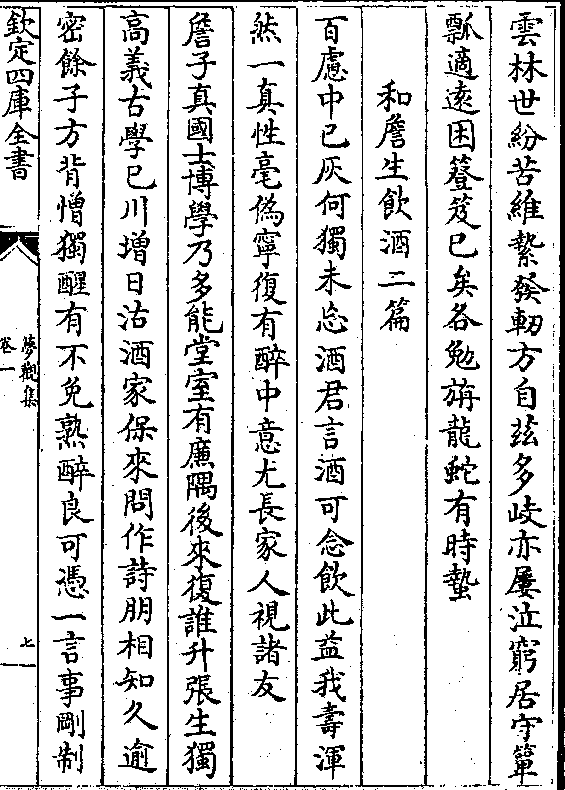 雲林世紛苦維縶發軔方自茲多岐亦屢泣窮居守簞
瓢適遠困簦笈已矣各勉旃龍蛇有時蟄
和詹生飲酒二篇
百慮中已灰何獨未忘酒君言酒可念飲此益我壽渾
然一真性毫偽寧復有醉中意尤長家人視諸友
詹子真國士博學乃多能堂室有廉隅後來復誰升張生獨
高義古學已川增日沽酒家保來問作詩朋相知久逾
密餘子方背憎獨醒有不免熟醉良可憑一言事剛制
欽定四庫全書
夢觀集
卷一
七